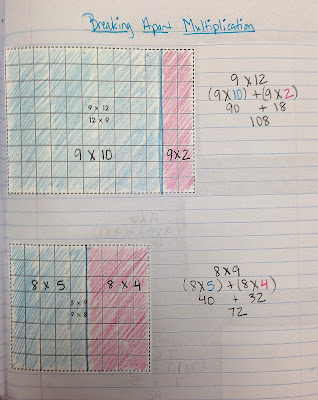 Breaking Apart Multiplication
9 x 12
12 x 9
9 X 10
9X2
9 X 12
(9X10) + (9X2)
90 + 18
108
8 X 5
8 X 4
8 x 9
9 x 8
8X9
(8X5) + (8X4)
40 + 32
72